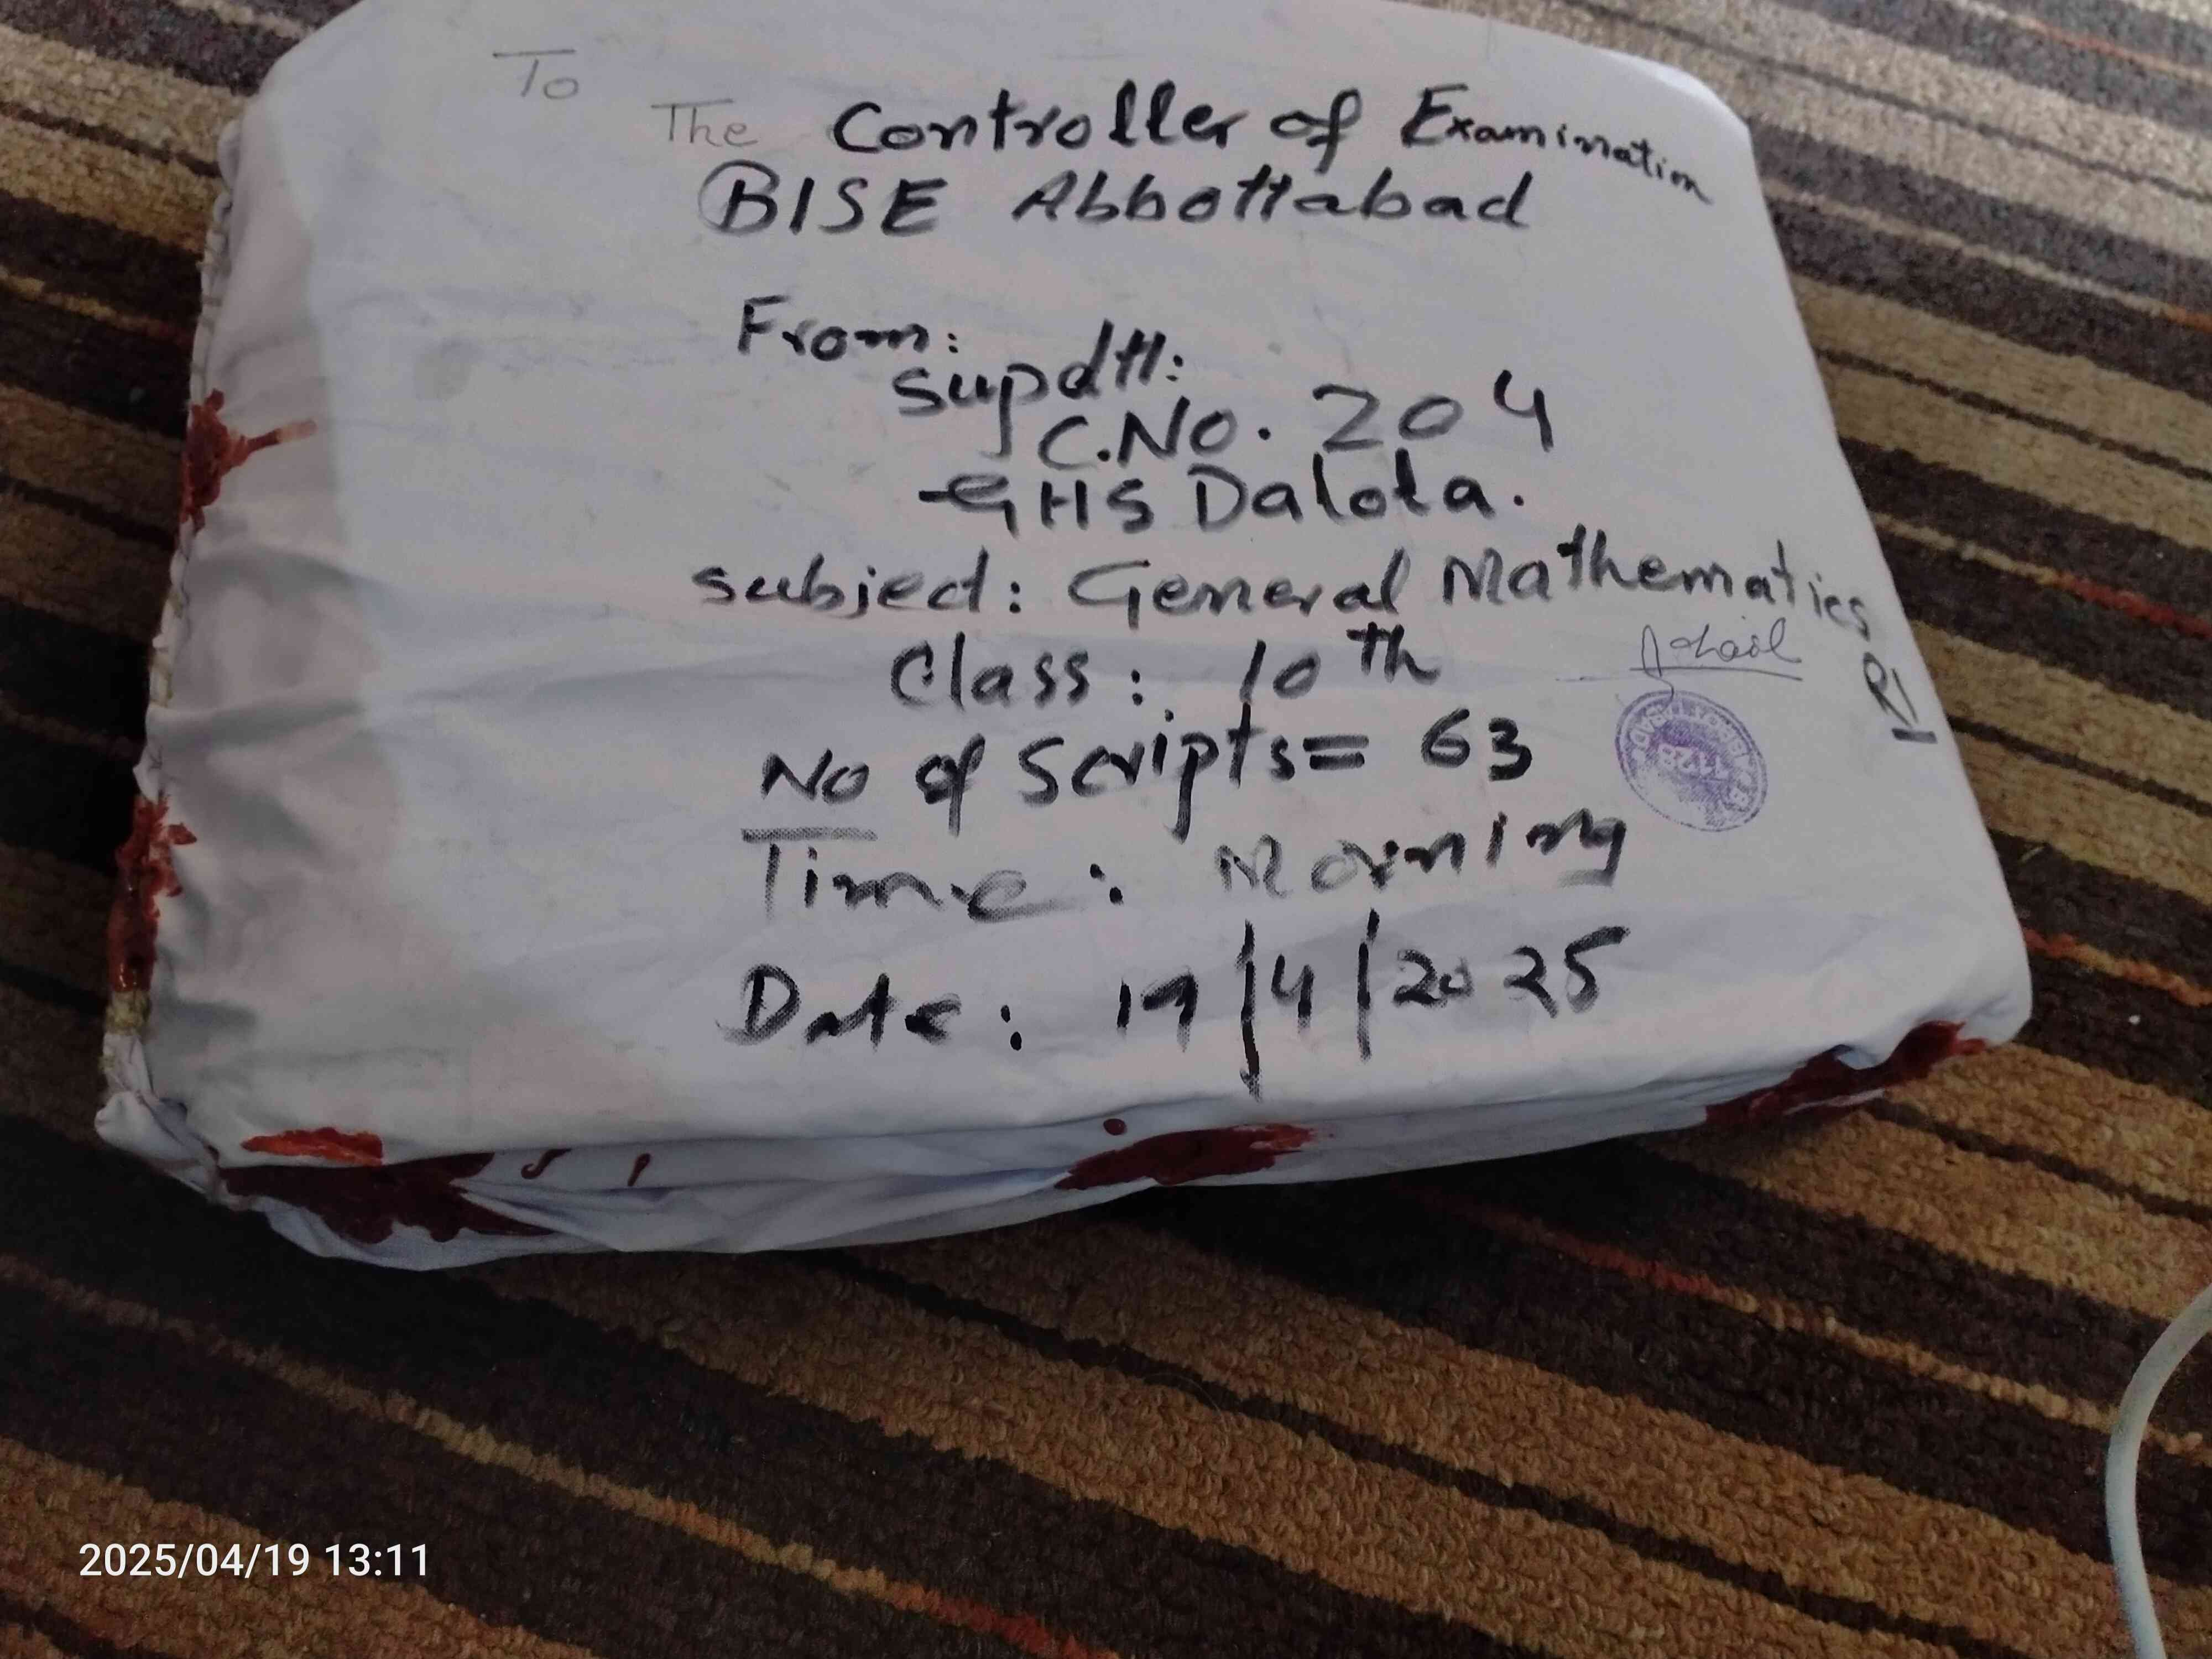 To
The Controller of Examination
BISE Abbottabad
From:
Supdtt:
C.No. 204
GHS Dalola.
Subject: General Mathematics
Class: 10th
R1
No of Scripts= 63
Time: Morning
Date: 19/4/2025
2025/04/19 13:11